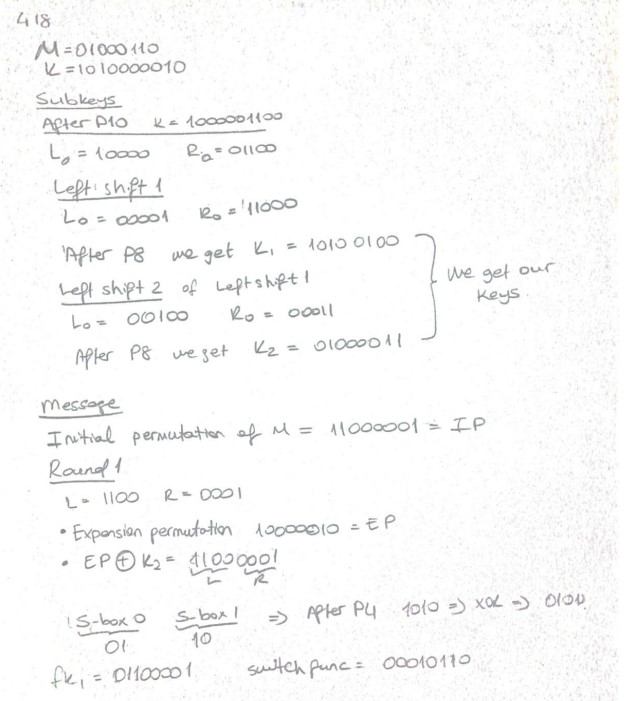 418
M=01000110
K=1010000010
Subkeys
After P10 K= 1000001100
L0 = 10000 R0 = 01100
Left shift 1
L0 = 00001 R0 = 11000
After P8 we get K1 = 10100100
Left shift 2 of Left shift 1
We get our
keys.
L0 = 00100 R0 = 00011
After P8 we get K2 = 01000011
Message
Initial permutation of M = 11000001 = IP
Round 1
L= 1100 R= 0001
• Expansion permutation 10000010 = EP
• EP ⊕ K2 = 11000001
L R
S-box 0 S-box 1 => After P4 1010 => XOR =>
01 10
fk1 = 01100001 switch func = 00010110